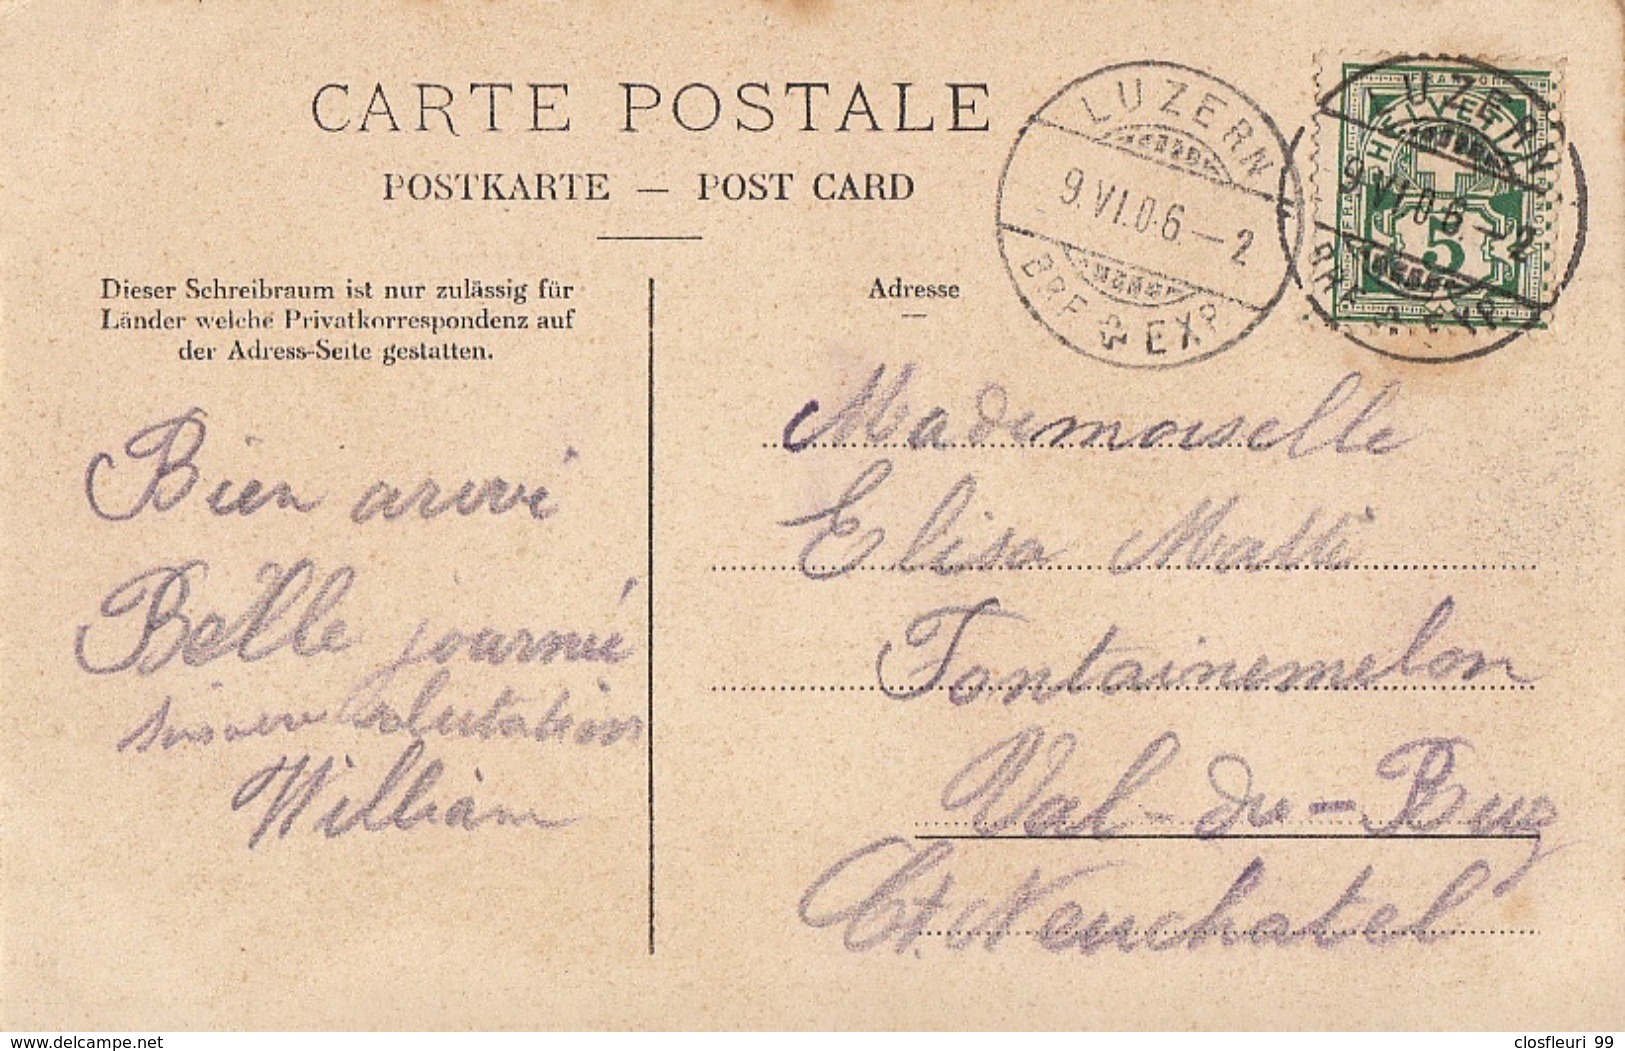 CARTE POSTALE
POSTKARTE — POST CARD
LUZERN
9.VI.06.–2
BRF. EXP.
FRANCO
HELVETIA
5
LUZERN
9.VI.06.–2
BRF. EXP.
Dieser Schreibraum ist nur zulässig für
Länder welche Privatkorrespondenz auf
der Adress-Seite gestatten.
Adresse
Bien arivé
Belle journée
salutations
William
Mademoiselle
Elisa Matti
Fontainemelon
Val-du-Ruz
Ct. Neuchatel
delcampe.net
closfleuri 99